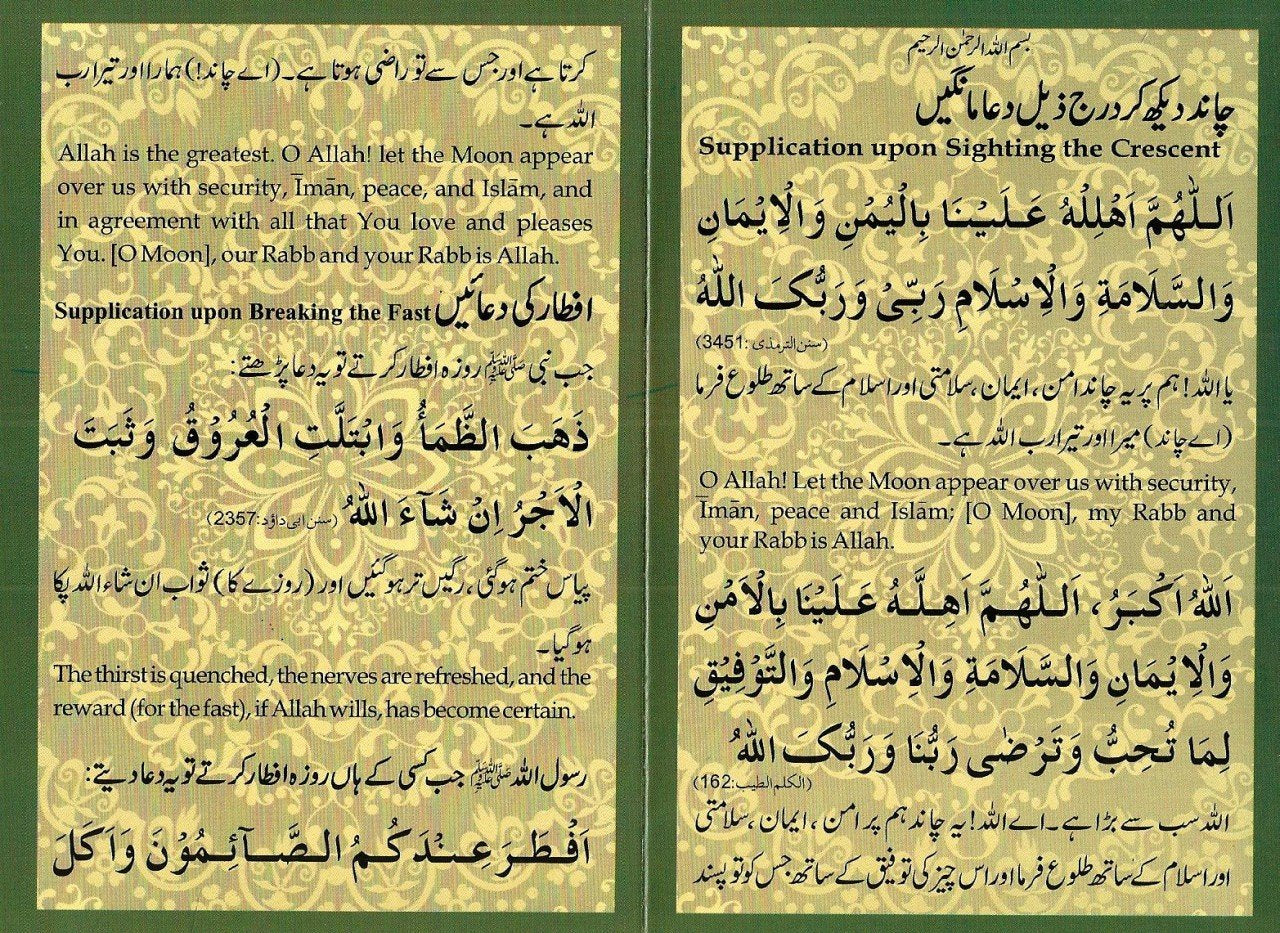 بسم اللہ الرحمٰن الرحیم
چاند دیکھ کر درج ذیل دعا مانگیں
Supplication upon Sighting the Crescent
اَللّٰهُمَّ اَهْلِلْهُ عَلَيْنَا بِالْيُمْنِ وَالْاِيْمَانِ
وَالسَّلَامَةِ وَالْاِسْلَامِ رَبِّىْ وَرَبُّكَ اللّٰهُ
(سنن الترمذی:3451)
یا اللہ! ہم پر یہ چاند امن، ایمان، سلامتی اور اسلام کے ساتھ طلوع فرما
(اے چاند) میرا اور تیرا رب اللہ ہے۔
O Allah! Let the Moon appear over us with security,
Īmān, peace and Islām; [O Moon], my Rabb and
your Rabb is Allah.
اَللّٰهُ اَكْبَرُ، اَللّٰهُمَّ اَهِلَّهُ عَلَيْنَا بِالْاَمْنِ
وَالْاِيْمَانِ وَالسَّلَامَةِ وَالْاِسْلَامِ وَالتَّوْفِيْقِ
لِمَا تُحِبُّ وَتَرْضٰى رَبُّنَا وَرَبُّكَ اللّٰهُ
(الکلم الطیب:162)
اللہ سب سے بڑا ہے۔ اے اللہ! یہ چاند ہم پر امن، ایمان، سلامتی
اور اسلام کے ساتھ طلوع فرما اور اس چیز کی توفیق کے ساتھ جس کو تو پسند
کرتا ہے اور جس سے تو راضی ہوتا ہے۔ (اے چاند!) ہمارا اور تیرا رب
اللہ ہے۔
Allah is the greatest. O Allah! let the Moon appear
over us with security, Īmān, peace, and Islām, and
in agreement with all that You love and pleases
You. [O Moon], our Rabb and your Rabb is Allah.
افطار کی دعائیں Supplication upon Breaking the Fast
جب نبی ﷺ روزہ افطار کرتے تو یہ دعا پڑھتے:
ذَهَبَ الظَّمَأُ وَابْتَلَّتِ الْعُرُوْقُ وَثَبَتَ
الْاَجْرُ اِنْ شَآءَ اللّٰهُ (سنن ابی داؤد:2357)
پیاس ختم ہوگئی، رگیں تر ہوگئیں اور (روزے کا) ثواب ان شاء اللہ پکا
ہوگیا۔
The thirst is quenched, the nerves are refreshed, and the
reward (for the fast), if Allah wills, has become certain.
رسول اللہ ﷺ جب کسی کے ہاں روزہ افطار کرتے تو یہ دعا دیتے:
اَفْطَرَ عِنْدَكُمُ الصَّآئِمُوْنَ وَاَكَلَ